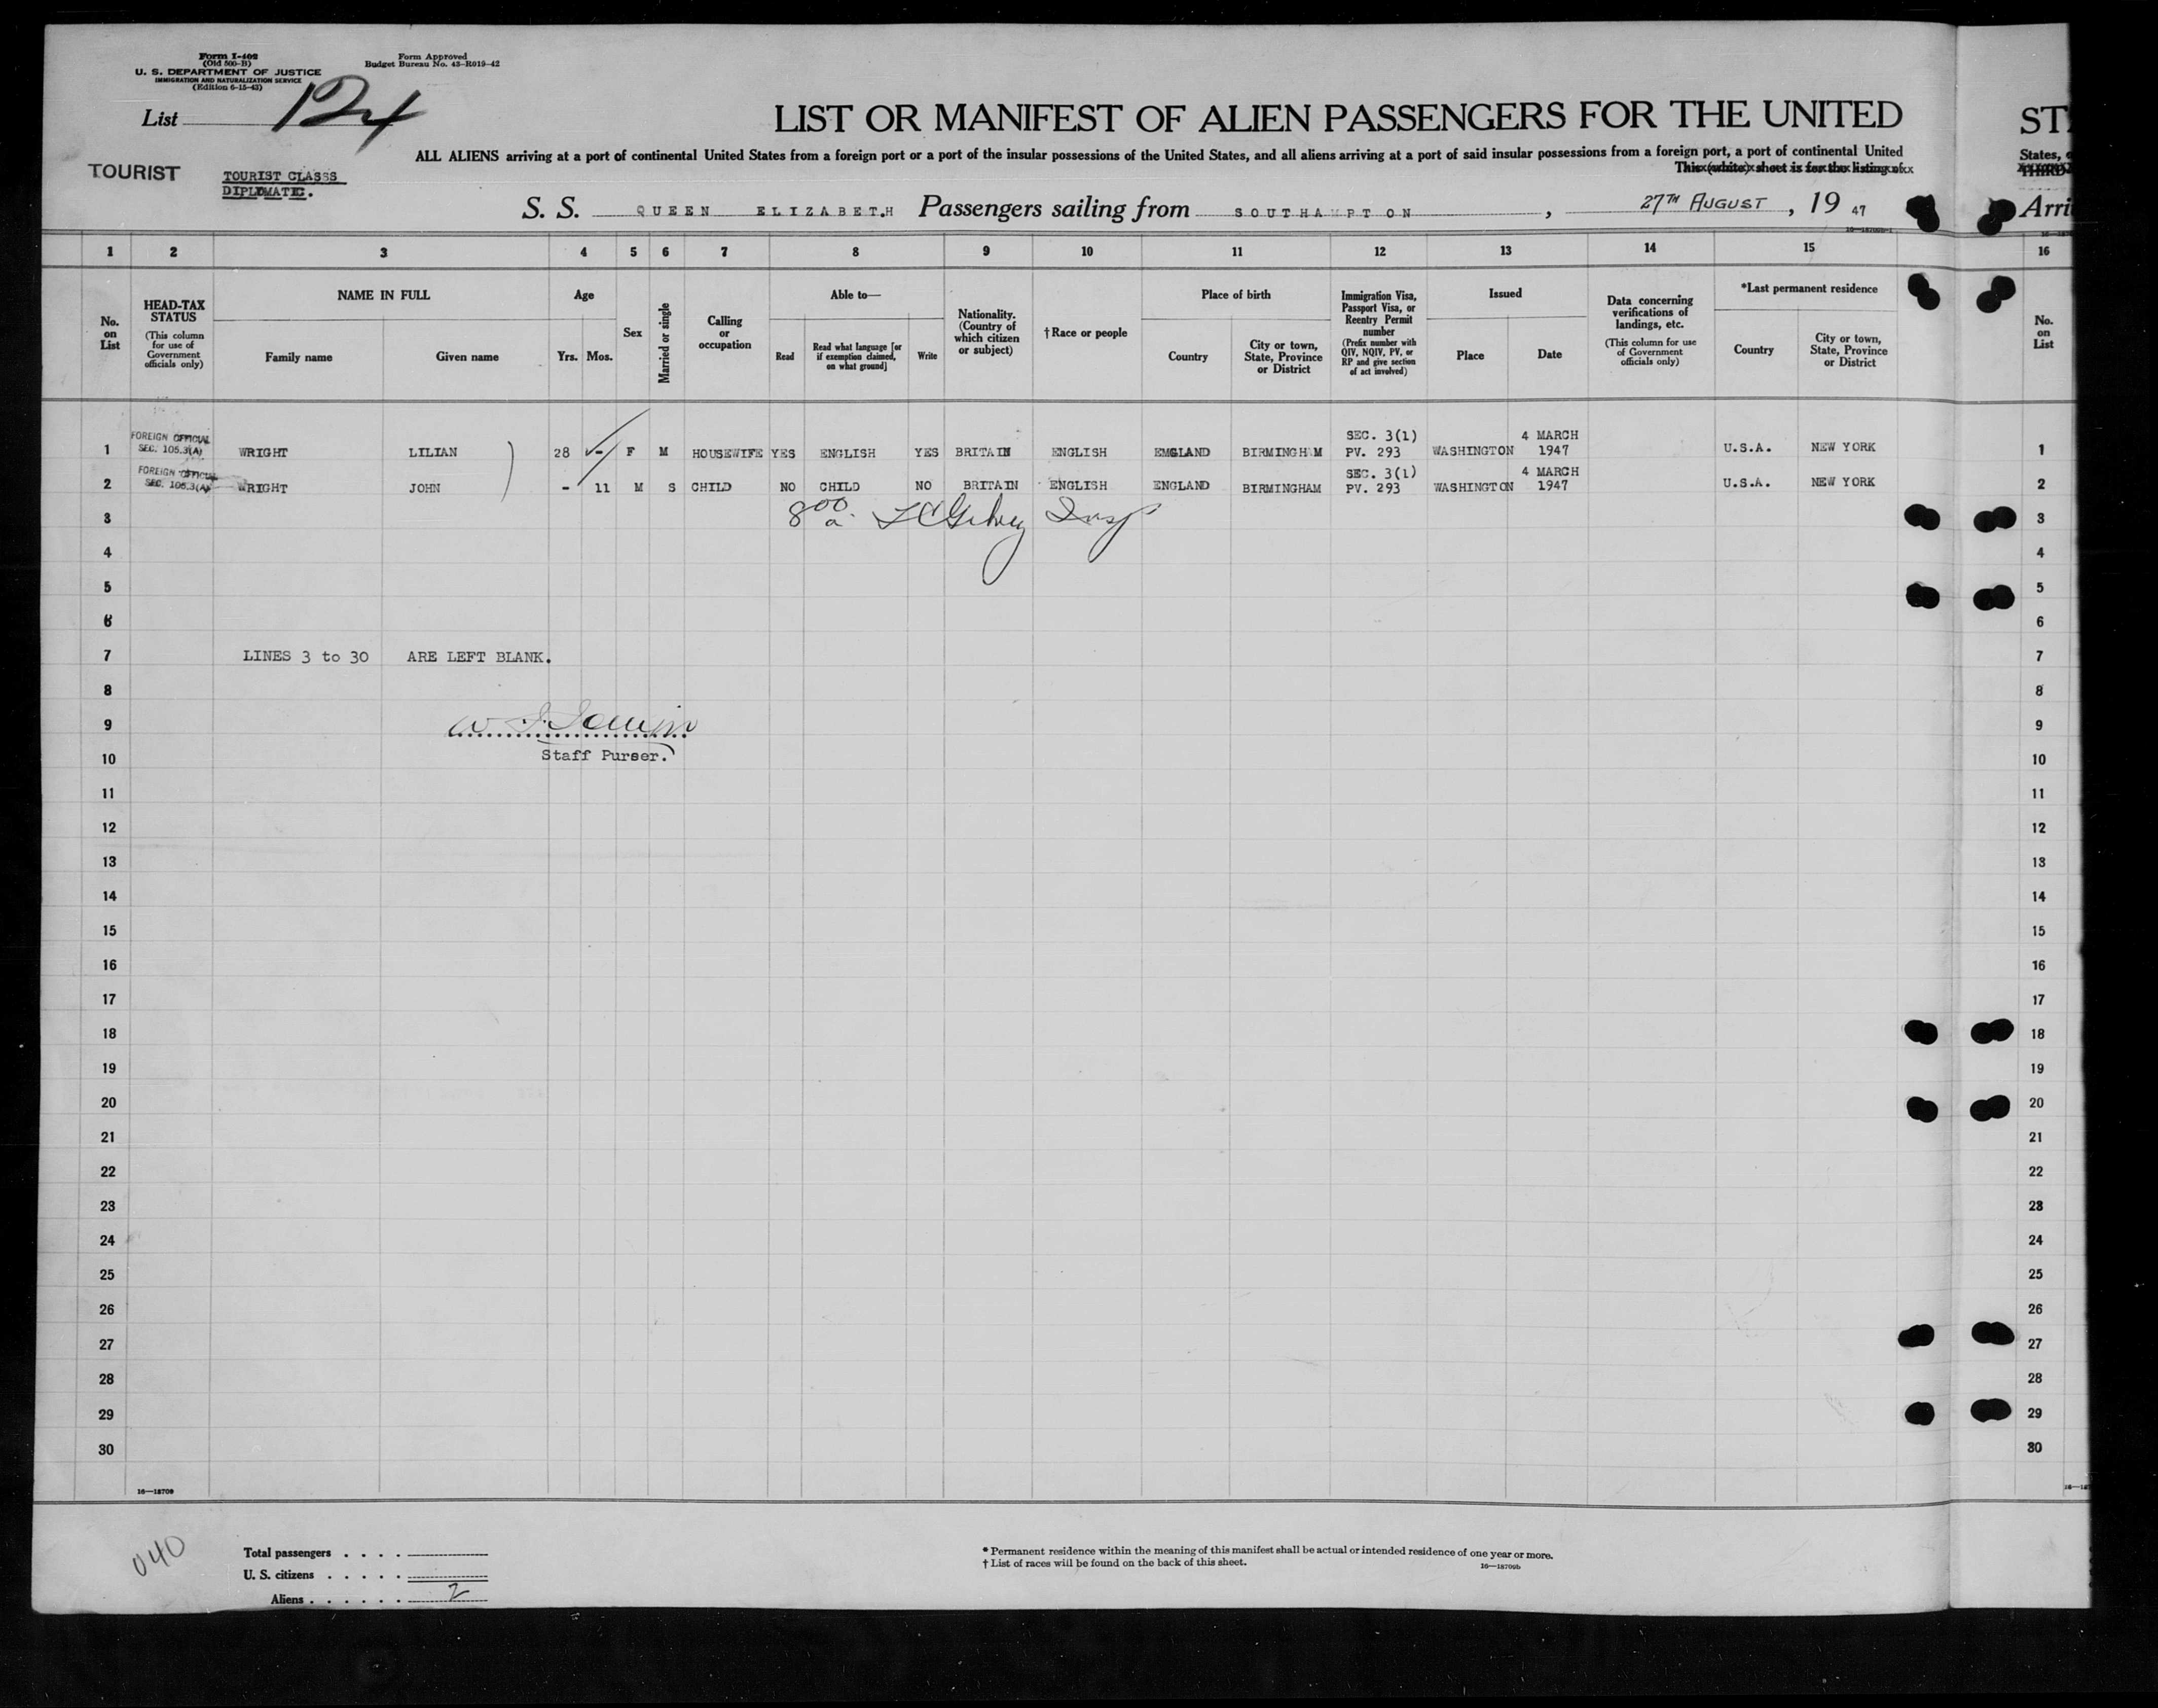 Form I-402
(Old 500-B)
U. S. DEPARTMENT OF JUSTICE
IMMIGRATION AND NATURALIZATION SERVICE
(Edition 6-15-43)
Form Approved
Budget Bureau No. 43-R019-42
List 124
LIST OR MANIFEST OF ALIEN PASSENGERS FOR THE UNITED
ST
ALL ALIENS arriving at a port of continental United States from a foreign port or a port of the insular possessions of the United States, and all aliens arriving at a port of said insular possessions from a foreign port, a port of continental United
States,
This (white) sheet is for the listing of
THIRD
TOURIST
TOURIST CLASSS
DIPLOMATIC.
S. S. QUEEN ELIZABETH Passengers sailing from SOUTHAMPTON, 27TH AUGUST, 19 47
Arri
1 2 3 4 5 6 7 8 9 10 11 12 13 14 15 16
No. on List
HEAD-TAX STATUS
(This column for use of Government officials only)
NAME IN FULL
Family name Given name
Age
Yrs. Mos.
Sex
Married or single
Calling or occupation
Able to—
Read Read what language [or if exemption claimed, on what ground] Write
Nationality. (Country of which citizen or subject)
†Race or people
Place of birth
Country City or town, State, Province or District
Immigration Visa, Passport Visa, or Reentry Permit number
(Prefix number with QIV, NQIV, PV, or RP and give section of act involved)
Issued
Place Date
Data concerning verifications of landings, etc.
(This column for use of Government officials only)
*Last permanent residence
Country City or town, State, Province or District
No. on List
1 FOREIGN OFFICIAL SEC. 105.3(A) WRIGHT LILIAN 28 - F M HOUSEWIFE YES ENGLISH YES BRITAIN ENGLISH EMGLAND BIRMINGHAM SEC. 3(1) PV. 293 WASHINGTON 4 MARCH 1947 U.S.A. NEW YORK 1
2 FOREIGN OFFICIAL SEC. 105.3(A) WRIGHT JOHN - 11 M S CHILD NO CHILD NO BRITAIN ENGLISH ENGLAND BIRMINGHAM SEC. 3(1) PV. 293 WASHINGTON 4 MARCH 1947 U.S.A. NEW YORK 2
3 8 00 a Insp 3
4 4
5 5
6 6
7 LINES 3 to 30 ARE LEFT BLANK. 7
8 8
9 9
10 Staff Purser. 10
11 11
12 12
13 13
14 14
15 15
16 16
17 17
18 18
19 19
20 20
21 21
22 22
23 23
24 24
25 25
26 26
27 27
28 28
29 29
30 30
16—18709
040
Total passengers
U. S. citizens
Aliens 2
* Permanent residence within the meaning of this manifest shall be actual or intended residence of one year or more.
† List of races will be found on the back of this sheet.
16—18709b